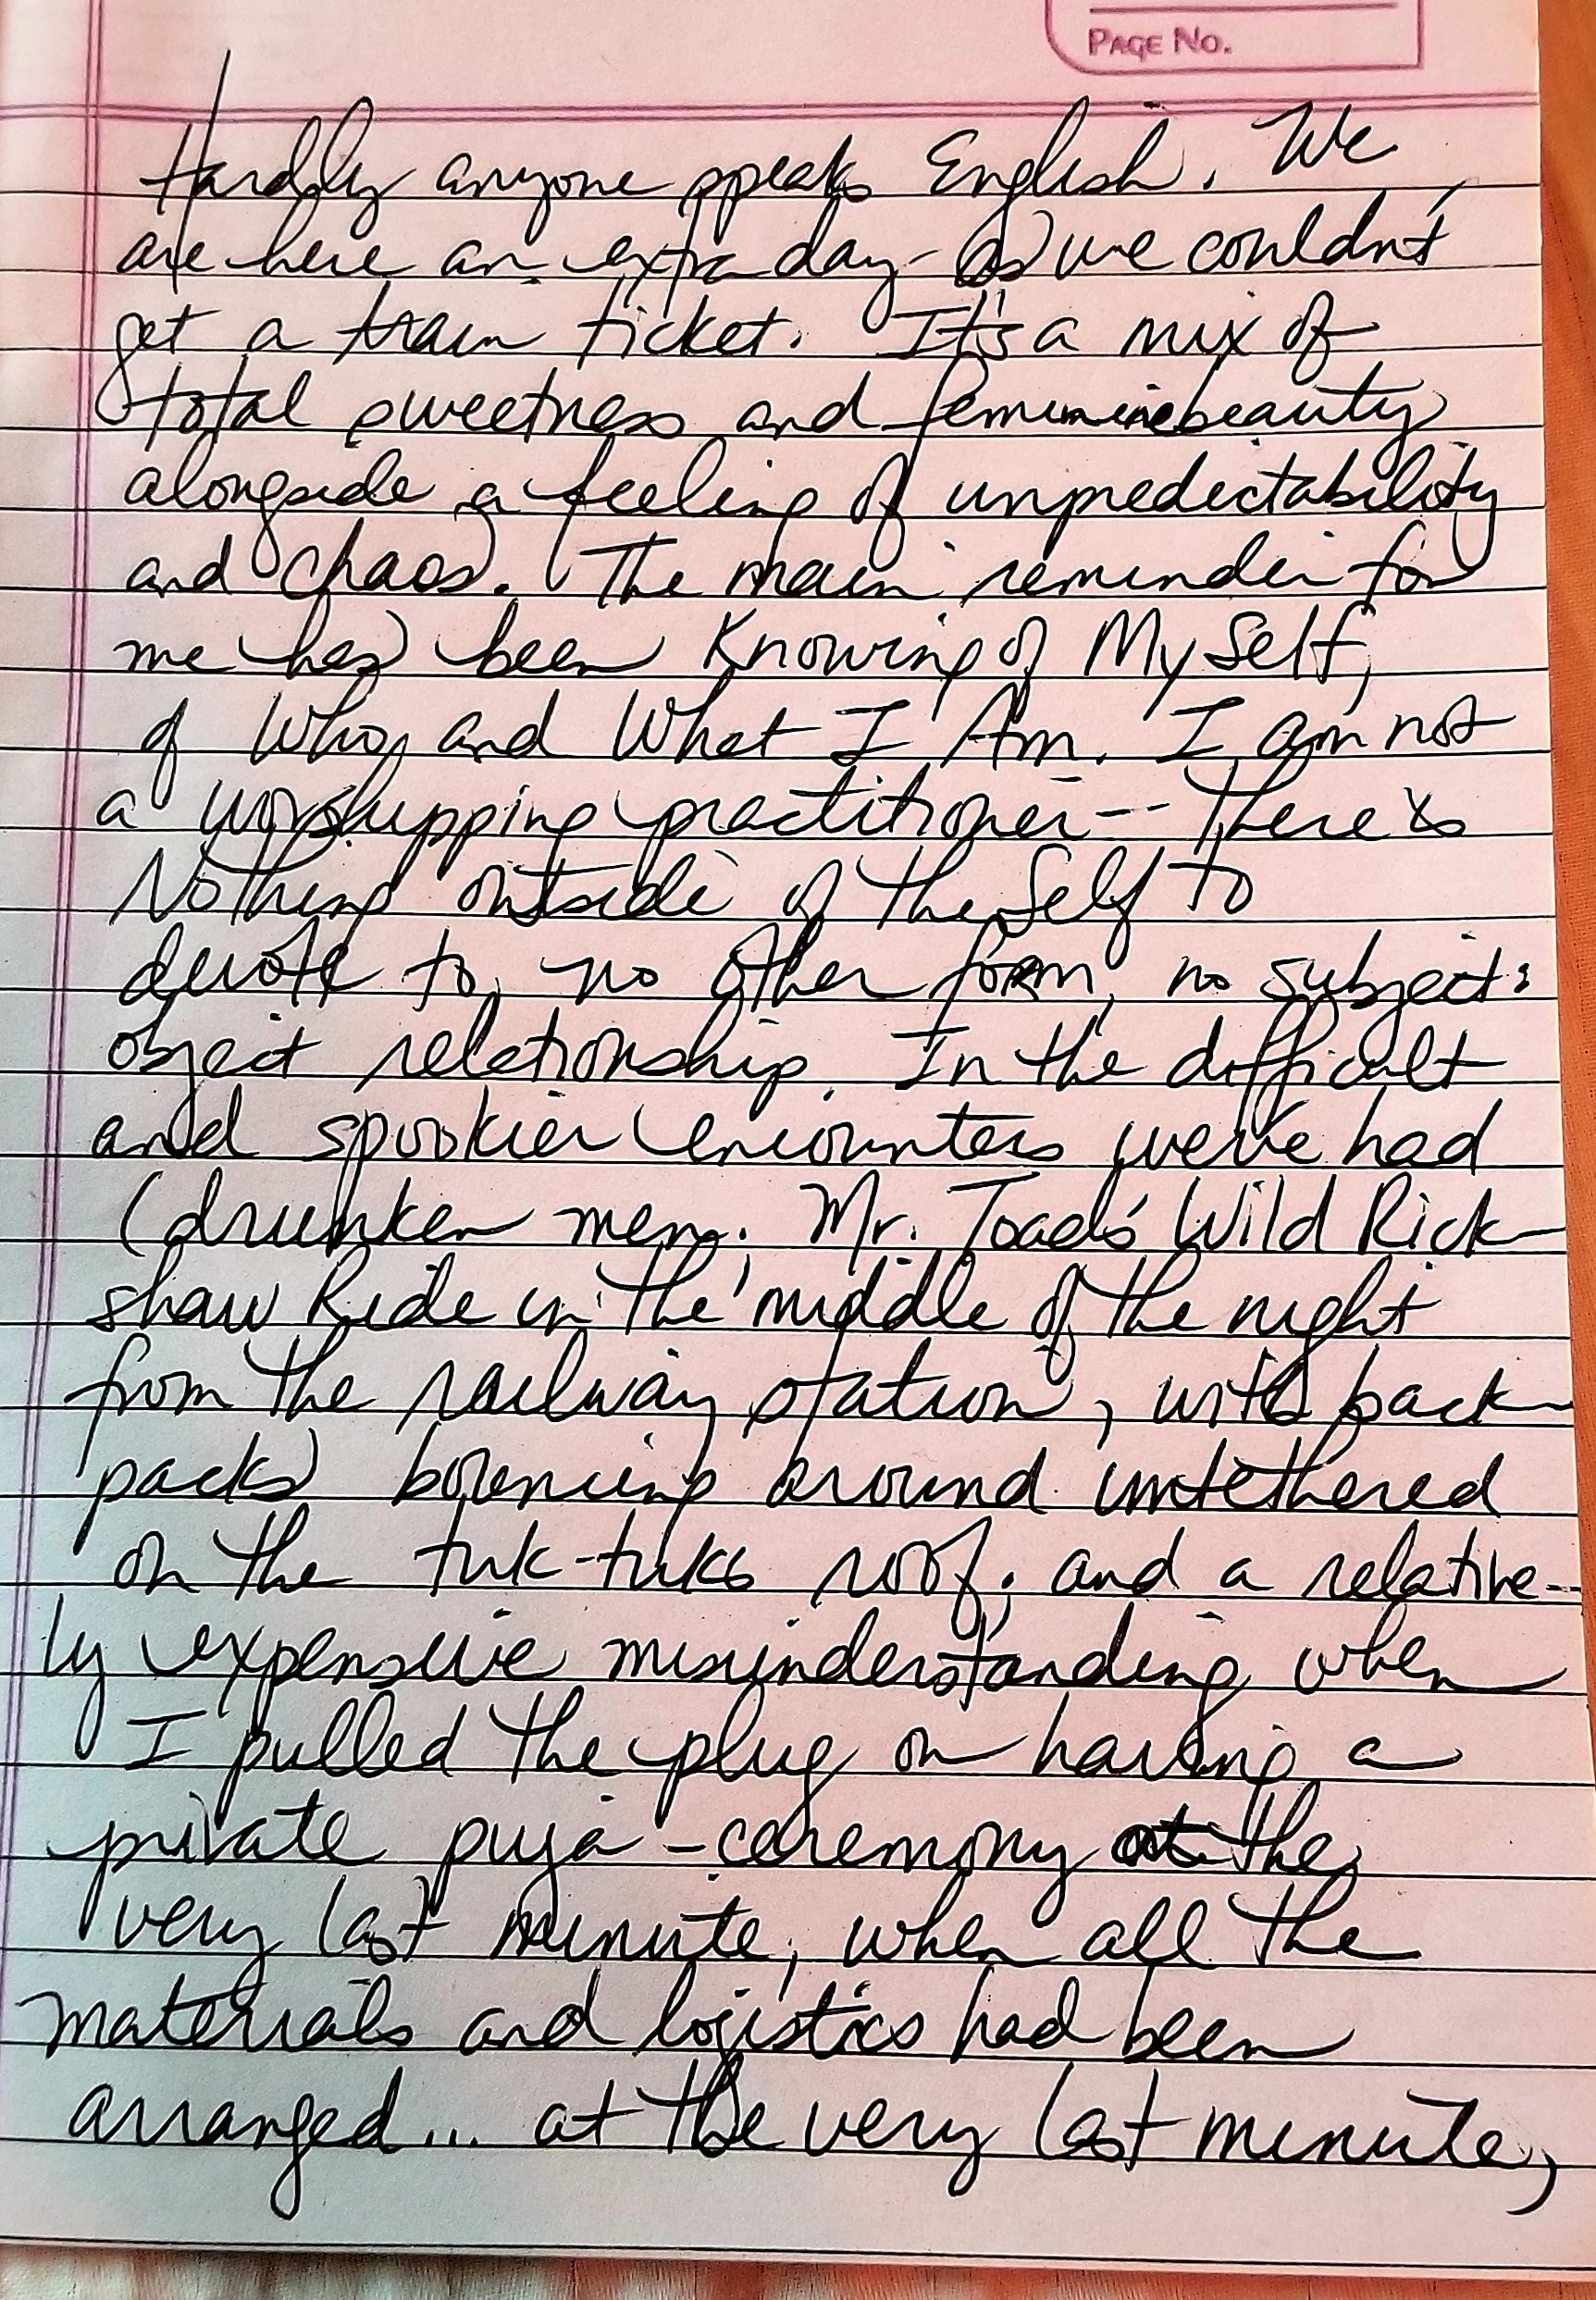 PAGE NO.
Hardly anyone speaks English. We
are here an extra day - as we couldn't
get a train ticket. It's a mix of
total sweetness and feminine beauty
alongside a feeling of unpredictability
and chaos. The main reminder for
me has been Knowing of My Self,
of Who and What I Am. I am not
a worshipping practitioner -- There is
Nothing outside of the Self to
devote to, no other form, no subject:
object relationship. In the difficult
and spookier encounters we've had
(drunken men; Mr. Toad's Wild Rick-
shaw Ride in the middle of the night
from the railway station, with back-
packs bouncing around untethered
on the tuk-tuks roof; and a relative-
ly expensive misunderstanding when
I pulled the plug on having a
private puja-ceremony at the
very last minute, when all the
materials and logistics had been
arranged... at the very last minute,